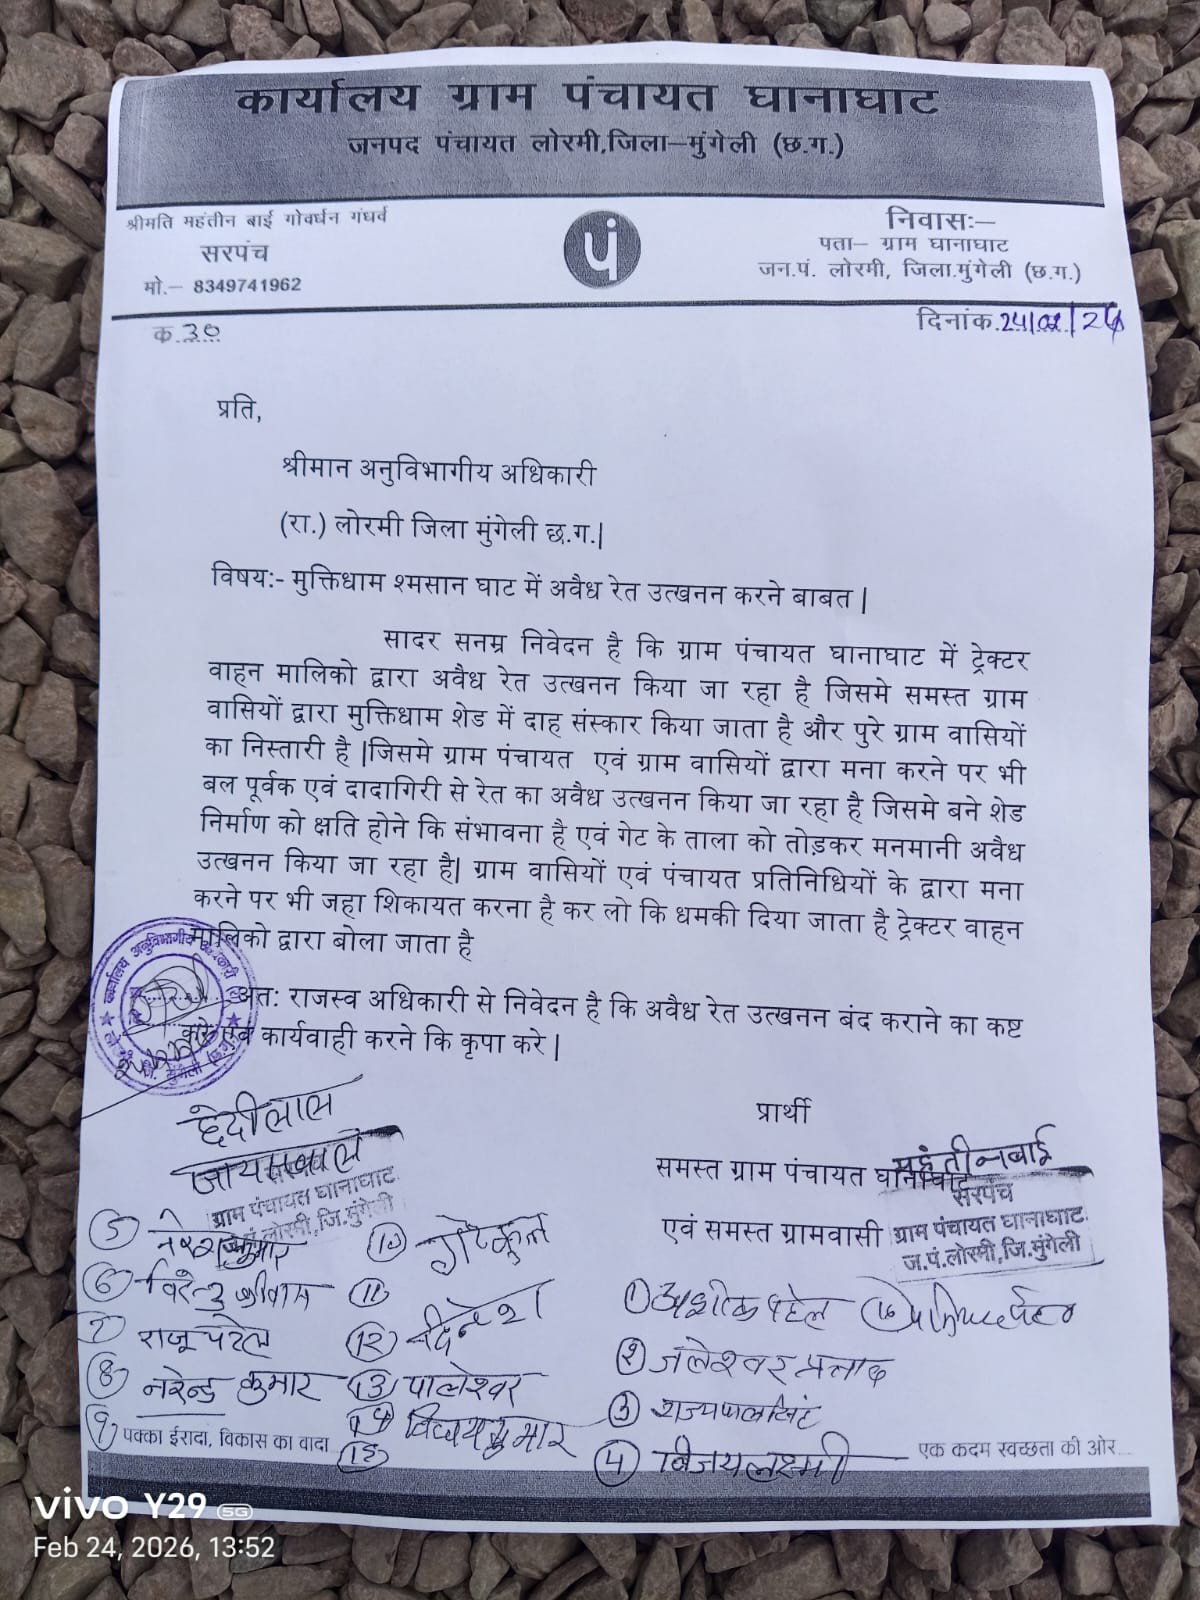 कार्यालय ग्राम पंचायत घानाघाट
जनपद पंचायत लोरमी,जिला–मुंगेली (छ.ग.)
श्रीमति महंतीन बाई गोवर्धन गंधर्व
सरपंच
मो.– 8349741962
पं
निवासः–
पता– ग्राम घानाघाट
जन.पं. लोरमी, जिला.मुंगेली (छ.ग.)
क.30
दिनांक.24/02/26
प्रति,
श्रीमान अनुविभागीय अधिकारी
(रा.) लोरमी जिला मुंगेली छ.ग.|
विषय:- मुक्तिधाम श्मसान घाट में अवैध रेत उत्खनन करने बाबत |
सादर सनम्र निवेदन है कि ग्राम पंचायत घानाघाट में ट्रेक्टर
वाहन मालिको द्वारा अवैध रेत उत्खनन किया जा रहा है जिसमे समस्त ग्राम
वासियों द्वारा मुक्तिधाम शेड में दाह संस्कार किया जाता है और पुरे ग्राम वासियों
का निस्तारी है |जिसमे ग्राम पंचायत एवं ग्राम वासियों द्वारा मना करने पर भी
बल पूर्वक एवं दादागिरी से रेत का अवैध उत्खनन किया जा रहा है जिसमे बने शेड
निर्माण को क्षति होने कि संभावना है एवं गेट के ताला को तोड़कर मनमानी अवैध
उत्खनन किया जा रहा है| ग्राम वासियों एवं पंचायत प्रतिनिधियों के द्वारा मना
करने पर भी जहा शिकायत करना है कर लो कि धमकी दिया जाता है ट्रेक्टर वाहन
मालिको द्वारा बोला जाता है
अत: राजस्व अधिकारी से निवेदन है कि अवैध रेत उत्खनन बंद कराने का कष्ट
करे एवं कार्यवाही करने कि कृपा करे |
कार्यालय अनुविभागीय अधिकारी
मुंगेली (छ.ग.)
प्रार्थी
समस्त ग्राम पंचायत घानाघाट
एवं समस्त ग्रामवासी
महंतीनबाई
सरपंच
ग्राम पंचायत घानाघाट
ज.पं.लोरमी,जि.मुंगेली
छेदीलाल
जायसवाल
ग्राम पंचायत घानाघाट
ज.पं.लोरमी,जि.मुंगेली
① अशोक पटेल
② जलेश्वर प्रसाद
③ राज्यपाल सिंह
④ विजयलक्ष्मी
⑤ नरेश कुमार
⑥ विरेन्द्र श्रीवास
7 राजू पटेल
⑧ नरेन्द्र कुमार
⑨
⑩ गोकुल
⑪
⑫ दिनेश
⑬ पालेश्वर
⑭ विजय कुमार
⑮
⑯
पक्का ईरादा, विकास का वादा...
एक कदम स्वच्छता की ओर...
vivo Y29 5G
Feb 24, 2026, 13:52